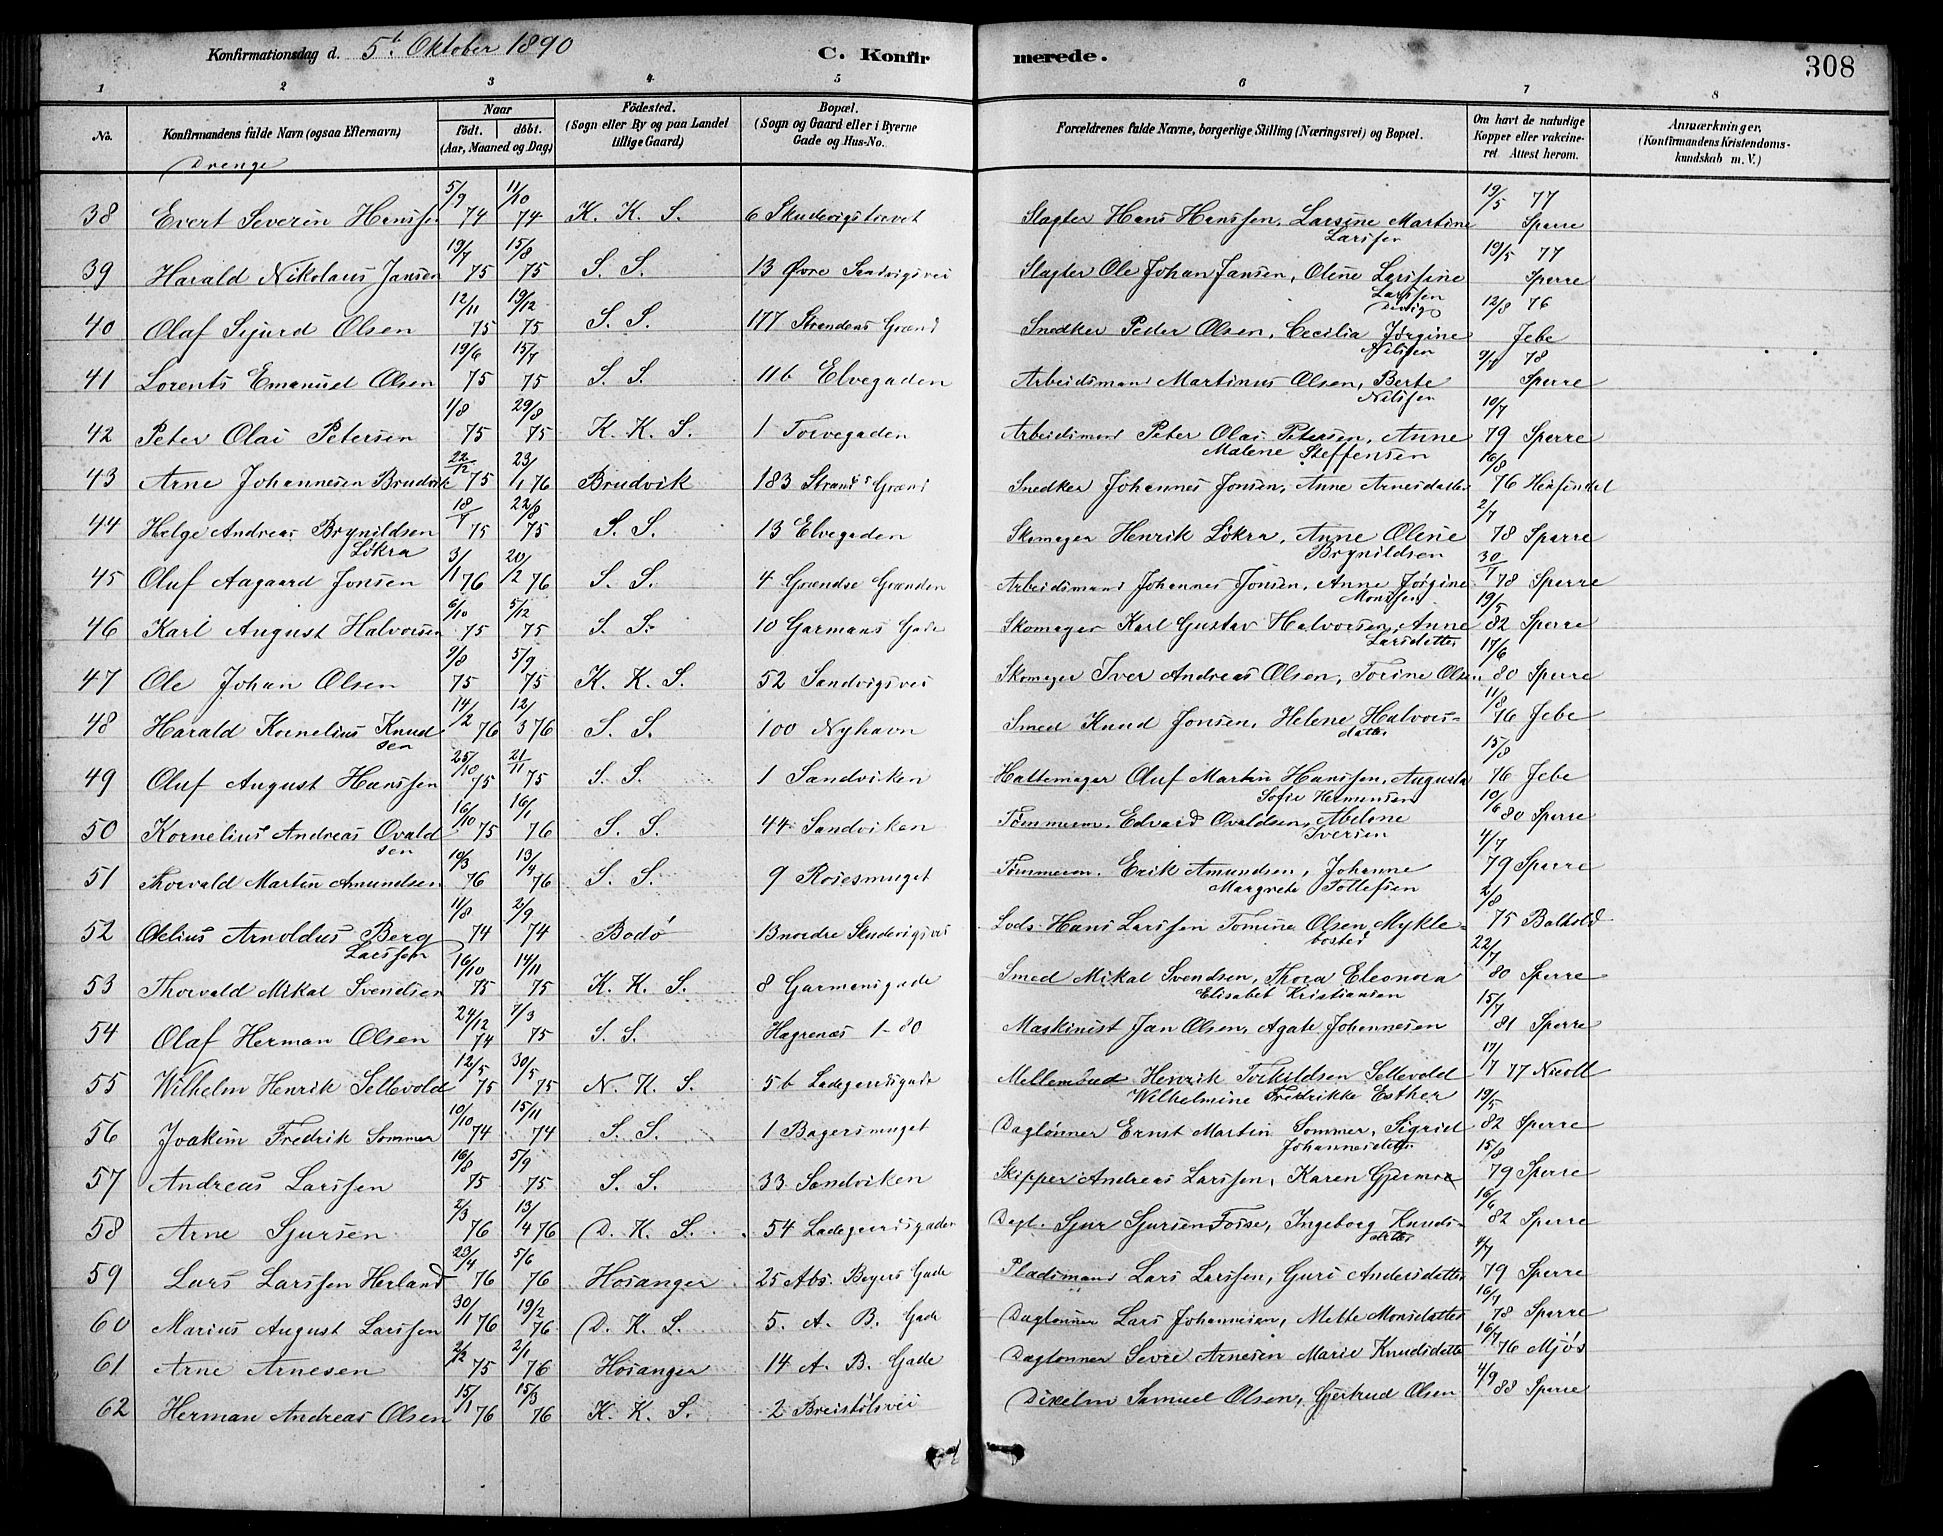 Konfirmationsdag d. 5t Oktober 1890 C. Konfirmerede. 308
1 2 3 4 5 6 7 8
No. Konfirmandens fulde Navn (ogsaa Efternavn) Naar födt. döbt. (Aar, Maaned og Dag) Födested. (Sogn eller By og paa Landet tillige Gaard) Bopæl. (Sogn og Gaard eller i Byerne Gade og Hus-No. Forældrenes fulde Navne, borgerlige Stilling (Næringsvei) og Bopæl. Om havt de naturlige Kopper eller vakcineret Attest herom. Anmærkninger. (Konfirmandens Kristendomskundskab m. V.)
Drenge
38 Evert Severin Hanssen 5/9 74 11/10 74 K. K. S. 6 Skudevigstorvet Slagter Hans Hanssen, Larsine Martine Larssen 19/5 77 Sperre
39 Harald Nikolaus Jansen 19/7 75 15/8 75 S. S. 13 Øvre Sandvigsvei Slagter Ole Johan Jansen, Oline Larssine Larssen 19/5 77 Sperre
40 Olaf Sjurd Olsen 12/11 75 19/12 75 S. S. 177 Strandens Grænd Snedker Peder Olsen, Cecilia Jørgine Nilssen 12/8 76 Jebe
41 Lorents Emanuel Olsen 19/6 75 15/7 75 S. S. 116 Elvegaden Arbeidsmand Martinus Olsen, Berte Nilssen 78 Sperre
42 Peter Olai Petersen 1/8 75 29/8 75 K. K. S. 1 Torvegaden Arbeidsmand Peter Olai Petersen, Anne Malene Steffensen 10/7 79 Sperre
43 Arne Johannesen Brudvik 22/12 75 23/1 76 Brudvik 183 Strands Grænd Snedker Johannes Jonsen, Anne Arnesdatter 16/8 76
44 Helge Andreas Brynildsen Løkra 18/7 75 22/8 75 S. S. 13 Elvegaden Skomager Henrik Løkra, Anne Oline Brynildsen 2/7 78 Sperre
45 Oluf Aagaard Jonsen 3/1 76 20/2 76 S. S. 4 Grændse Grænden Arbeidsmand Johannes Jonsen, Anne Jørgine Monssen 30/7 78 Sperre
46 Karl August Halvorsen 6/10 75 5/12 75 S. S. 10 Garmans Gade Skomager Karl Gustav Halvorsen, Anne Larsdatter 19/5 82 Sperre
47 Ole Johan Olsen 9/8 75 5/9 75 K. K. S. 52 Sandvigsvei Skomager Iver Andreas Olsen, Torine Olsen 17/6 80 Sperre
48 Harald Kornelius Knudsen 14/2 76 12/3 76 S. S. 100 Nyhavn Smed Knud Jonsen, Helene Halvorsdatter 11/8 76 Jebe
49 Oluf August Hanssen 25/10 75 21/11 75 S. S. 1 Sandviken Hattemager Oluf Martin Hanssen, Augusta Sofie Hermansen 15/8 76 Jebe
50 Kornelius Andreas Ovaldsen 16/10 75 16/1 76 S. S. 44 Sandviken Tømmerm. Edvard Ovaldsen, Abelone Iversen 10/6 80 Sperre
51 Thorvald Martin Amundsen 10/3 76 13/4 76 S. S. 9 Rosesmuget Tømmerm. Erik Amundsen, Johanne Margrete Tollefsen 4/7 79 Sperre
52 Arnoldus Berg Larssen 11/8 74 2/9 74 Bodø 13 nordre Skudevigsvei Lods Hans Larssen Tomine Olsen Myklebosted 2/8 75
53 Thorvald Mikal Svendsen 16/10 75 14/11 75 K. K. S. 8 Garmansgade Smed Mikal Svendsen, Thora Eleonora Elisabet Kristiansen 22/7 80 Sperre
54 Olaf Herman Olsen 24/12 74 7/3 75 S. S. Hegrenæs 1-80 Maskinist Jan Olsen, Agate Johannesen 15/7 81 Sperre
55 Wilhelm Henrik Sellevold 12/5 75 30/5 75 N. K. S. 56 Ladegaardsgade Henrik Torkildsen Sellevold Wilhelmine Fredrikke Esther 17/7 77 Nicoll
56 Joakim Fredrik Sommer 10/10 74 15/11 74 S. S. 1 Bagersmuget Daglønner Ernst Martin Sommer, Sigrid Johannesdatter 19/5 82 Sperre
57 Andreas Larssen 16/8 75 5/9 75 S. S. 33 Sandviken Skipper Andreas Larssen, Karen 15/8 79 Sperre
58 Arne Sjursen 2/3 76 13/4 76 D. K. S. 54 Ladegaardsgaden Dagl. Sjur Sjursen Fosse, Ingeborg Knudsdatter 16/6 82 Sperre
59 Lars Larssen Herland 23/4 76 5/6 76 Hosanger 25 Abs. Beyers Gade Pladsmand Lars Larssen, Guri Andersdatter 4/7 79 Sperre
60 Marius August Larssen 30/1 76 19/2 76 D. K. S. 5. A. B. Gade Daglønner Lars Johannesen, Mette Monsdatter 16/7 78 Sperre
61 Arne Arnesen 2/12 75 2/1 76 Hosanger 14 A. B. Gade Daglønner Sevre Arnesen Marie Knudsdatter 16/7 76 Mjøs
62 Herman Andreas Olsen 15/1 76 15/3 76 K. K. S. 2 Breistølsvei Samuel Olsen, Gjertrud Olsen 4/9 88 Sperre